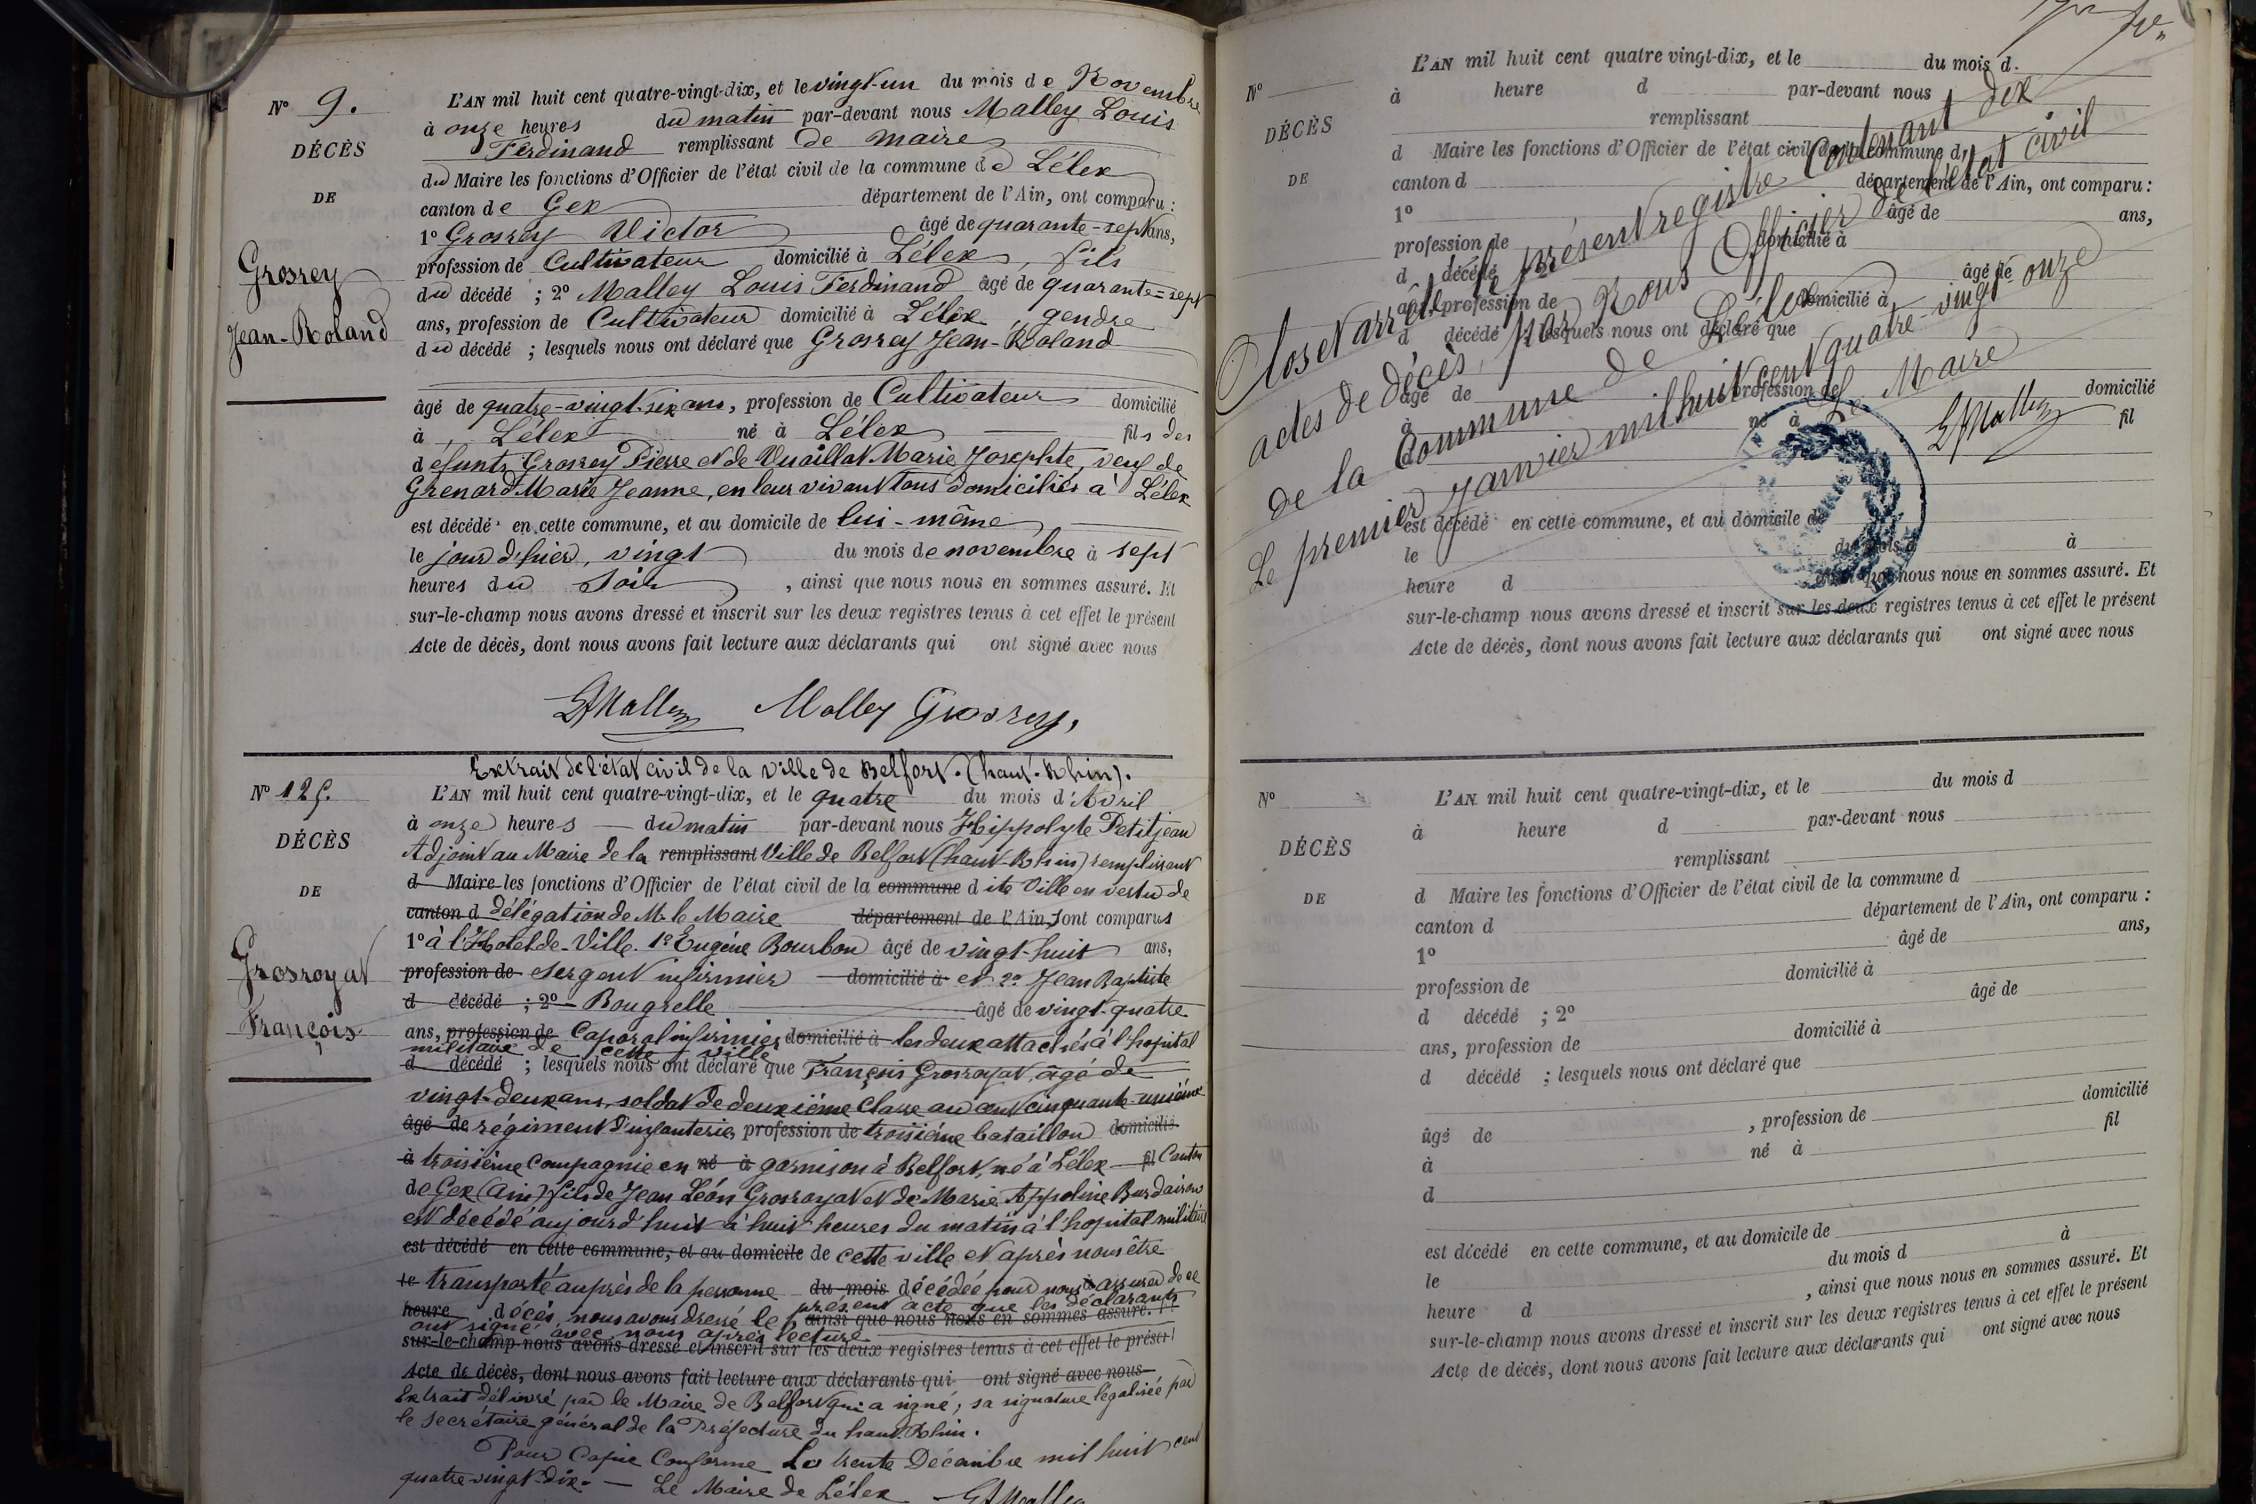 N° 9.
DÉCÈS
DE
Grosrey
Jean-Roland
L'AN mil huit cent quatre-vingt-dix, et le vingt-un du mois de Novembre
à onze heures du matin par-devant nous Malley Louis
Ferdinand remplissant de maire
du Maire les fonctions d'Officier de l'état civil de la commune de Lélex
canton de Gex département de l'Ain, ont comparu :
1° Grosrey Victor âgé de quarante-sept ans,
profession de Cultivateur domicilié à Lélex, fils
du décédé ; 2° Malley Louis Ferdinand âgé de quarante-sept
ans, profession de Cultivateur domicilié à Lélex, gendre
du décédé ; lesquels nous ont déclaré que Grosrey Jean-Roland
âgé de quatre-vingt-six ans, profession de Cultivateur domicilié
à Lélex né à Lélex fils des
défunts Grosrey Pierre et de Vuaillat Marie Josephte, veuf de
Grenard Marie Jeanne, en leur vivant tous domiciliés à Lélex
est décédé en cette commune, et au domicile de lui-même
le jour d'hier, vingt du mois de novembre à sept
heures du Soir, ainsi que nous nous en sommes assuré. Et
sur-le-champ nous avons dressé et inscrit sur les deux registres tenus à cet effet le présent
Acte de décès, dont nous avons fait lecture aux déclarants qui ont signé avec nous
LfMalley Malley Grosrey,
Extrait de l'état civil de la ville de Belfort. (haut-Rhin).
N° 125.
DÉCÈS
DE
Grosroyat
François
L'AN mil huit cent quatre-vingt-dix, et le quatre du mois d'Avril
à onze heures du matin par-devant nous Hippolyte Petitjean
Adjoint au Maire de la remplissant Ville de Belfort (haut-Rhin) remplissant
d Maire les fonctions d'Officier de l'état civil de la commune dite Ville en vertu de
canton d délégation de M. le Maire département de l'Ain, sont comparus
1° à l'Hotel-de-Ville. 1° Eugène Bourbon âgé de vingt-huit ans,
profession de Sergent infirmier domicilié à et 2° Jean Baptiste
d décédé ; 2° Bougrelle âgé de vingt-quatre
ans, profession de Caporal infirmier domicilié à les deux attachés à l'hopital
militaire de cette ville
d décédé ; lesquels nous ont déclaré que François Grosroyat, âgé de
vingt-deux ans, soldat de deuxième classe au cent cinquante-unième
âgé de régiment d'infanterie, profession de troisième bataillon domicilié
à troisième Compagnie en né à garnison à Belfort, né à Lélex fil Canton
de Gex (Ain) fils de Jean Léon Grosroyat et de Marie Appoline
est décédé aujourd'huit à huit heures du matin à l'hopital militaire
est décédé en cette commune, et au domicile de cette ville et après nous être
le transporté auprès de la personne du mois décédée pour nous assurer de ce
heure décès, nous avons dressé le présent acte que les déclarants ainsi que nous nous en sommes assuré. Et
ont signé avec nous après lecture
sur-le-champ nous avons dressé et inscrit sur les deux registres tenus à cet effet le présent
Acte de décès, dont nous avons fait lecture aux déclarants qui ont signé avec nous
Extrait délivré par le Maire de Belfort qui a signé ; sa signature légalisée par
le Secrétaire général de la Préfecture du haut-Rhin.
Pour Copie Conforme Le trente Décembre mil huit cent
quatre-vingt-dix. — Le Maire de Lélex LfMalley
N°
DÉCÈS
DE
L'AN mil huit cent quatre vingt-dix, et le du mois d.
à heure d par-devant nous
remplissant
d Maire les fonctions d'Officier de l'état civil de la commune d
canton d département de l'Ain, ont comparu :
1° âgé de ans,
profession de domicilié à
d décédé ; 2° âgé de
ans, profession de domicilié à
d décédé ; lesquels nous ont déclaré que
âgé de profession de domicilié
à né à fil
d
est décédé en cette commune, et au domicile de
le du mois d à
heure d , ainsi que nous nous en sommes assuré. Et
sur-le-champ nous avons dressé et inscrit sur les deux registres tenus à cet effet le présent
Acte de décès, dont nous avons fait lecture aux déclarants qui ont signé avec nous
Clos et arrêté le présent registre Contenant dix
actes de décès, par Nous Officier de l'état civil
de la Commune de Lélex
Le premier Janvier mil huit cent quatre-vingt-onze
Le Maire
LfMalley
N°
DÉCÈS
DE
L'AN mil huit cent quatre-vingt-dix, et le du mois d
à heure d par-devant nous
remplissant
d Maire les fonctions d'Officier de l'état civil de la commune d
canton d département de l'Ain, ont comparu :
1° âgé de ans,
profession de domicilié à
d décédé ; 2° âgé de
ans, profession de domicilié à
d décédé ; lesquels nous ont déclaré que
âgé de , profession de domicilié
à né à fil
d
est décédé en cette commune, et au domicile de
le du mois d à
heure d , ainsi que nous nous en sommes assuré. Et
sur-le-champ nous avons dressé et inscrit sur les deux registres tenus à cet effet le présent
Acte de décès, dont nous avons fait lecture aux déclarants qui ont signé avec nous